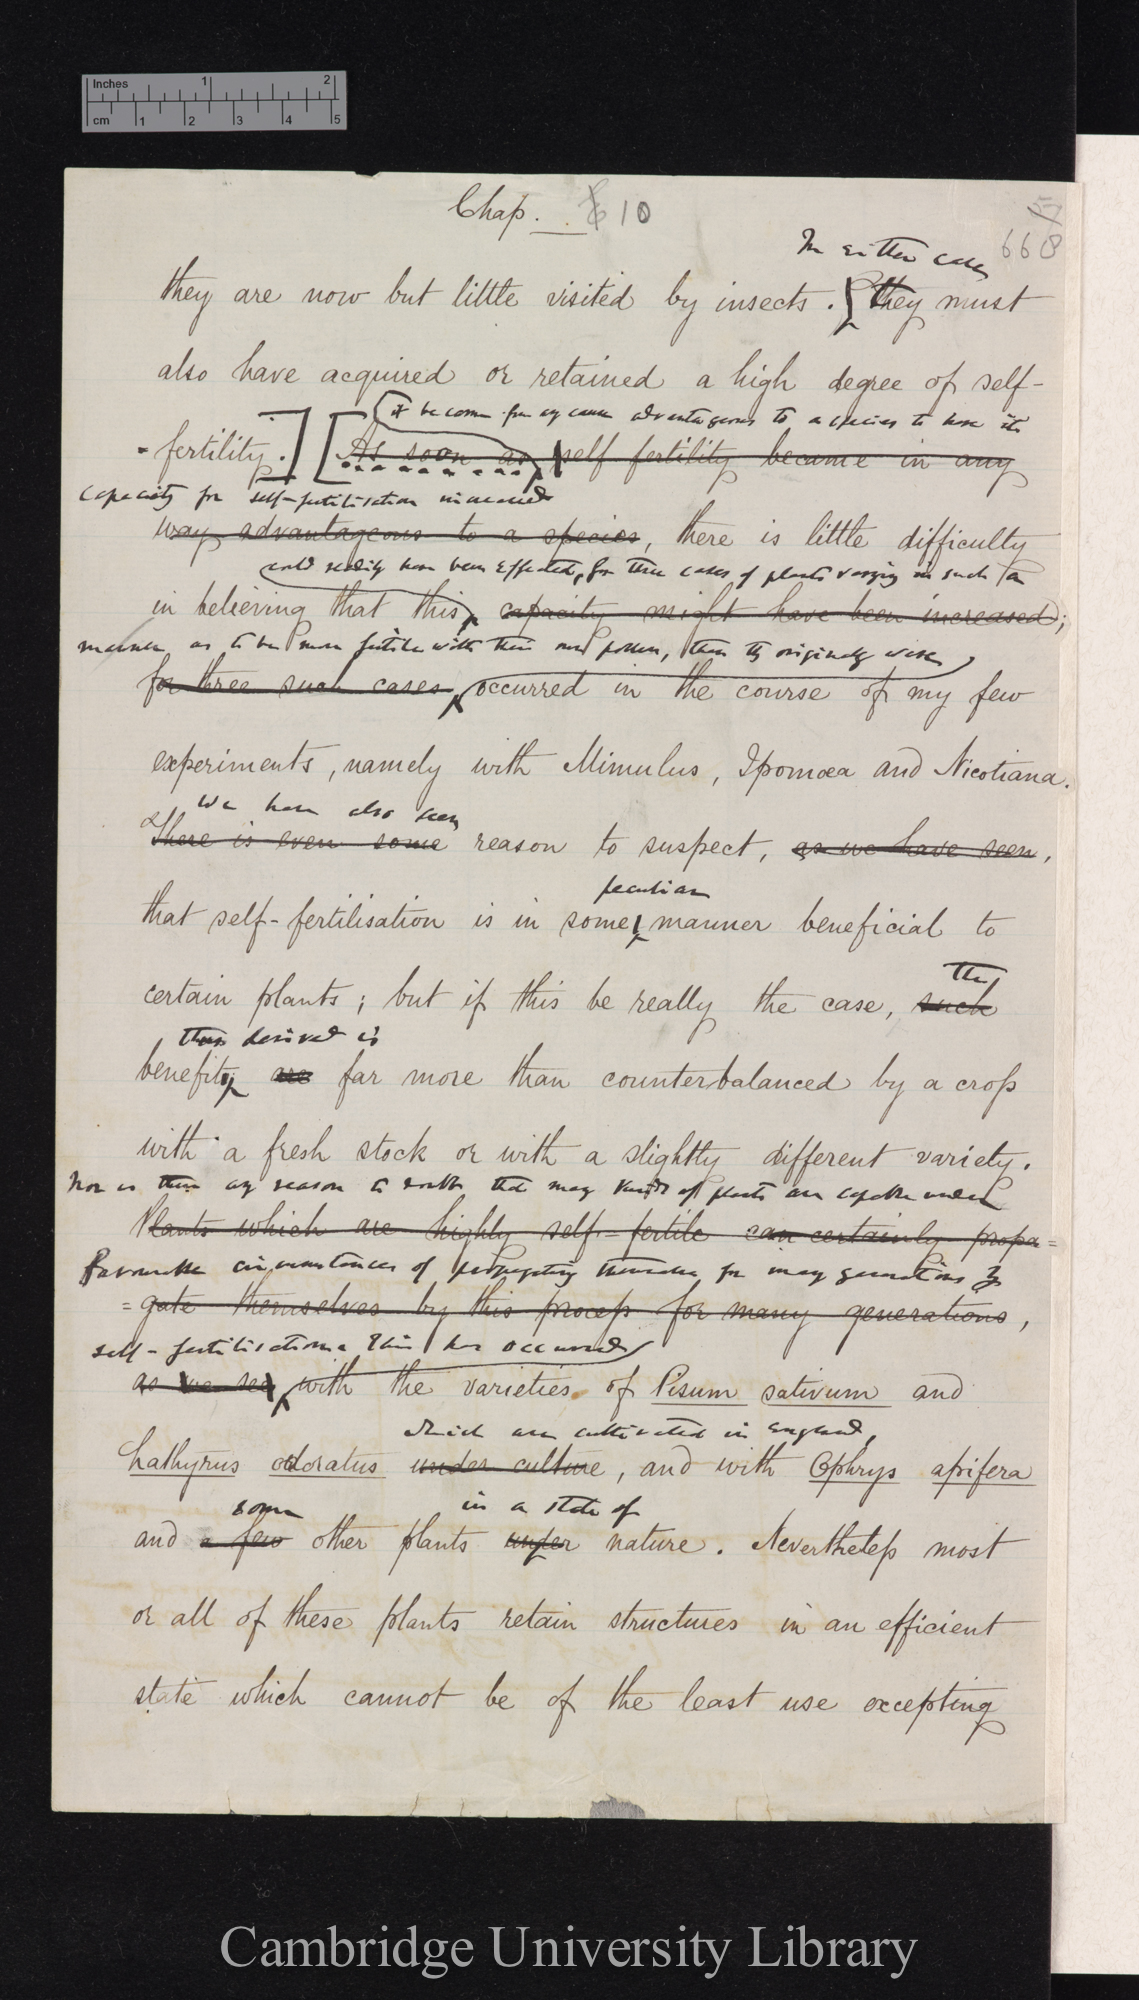 Inches 1 2
cm 1 2 3 4 5
Chap. 10
668
In either case
they are now but little visited by insects. they must
also have acquired or retained a high degree of self-
it become from any cause advantageous to a species to have its
-fertility.] [As soon as self fertility became in any
capacity for self-fertilisation increased
way advantageous to a species, there is little difficulty
could readily have been effected, for three cases of plants varying in such a
in believing that this capacity might have been increased;
manner as to be more fertile with their own pollen, than they originally were
for three such cases, occurred in the course of my few
experiments, namely with Mimulus, Ipomœa and Nicotiana.
We have also seen
There is even some reason to suspect, as we have seen,
peculiar
that self-fertilisation is in some manner beneficial to
the
certain plants; but if this be really the case, such
thus derived is
benefit are far more than counterbalanced by a cross
with a fresh stock or with a slightly different variety.
Nor is there any reason to doubt that many kinds of plants are capable under
Plants which are highly self-fertile can certainly propa=
favourable circumstances of propagating themselves for many generations by
=gate themselves by this process for many generations,
self-fertilisation. This has occurred
as we see with the varieties of Pisum sativum and
which are cultivated in England,
Lathyrus odoratus under culture, and with Ophrys apifera
some in a state of
and a few other plants under nature. Nevertheless most
or all of these plants retain structures in an efficient
state which cannot be of the least use excepting
Cambridge University Library